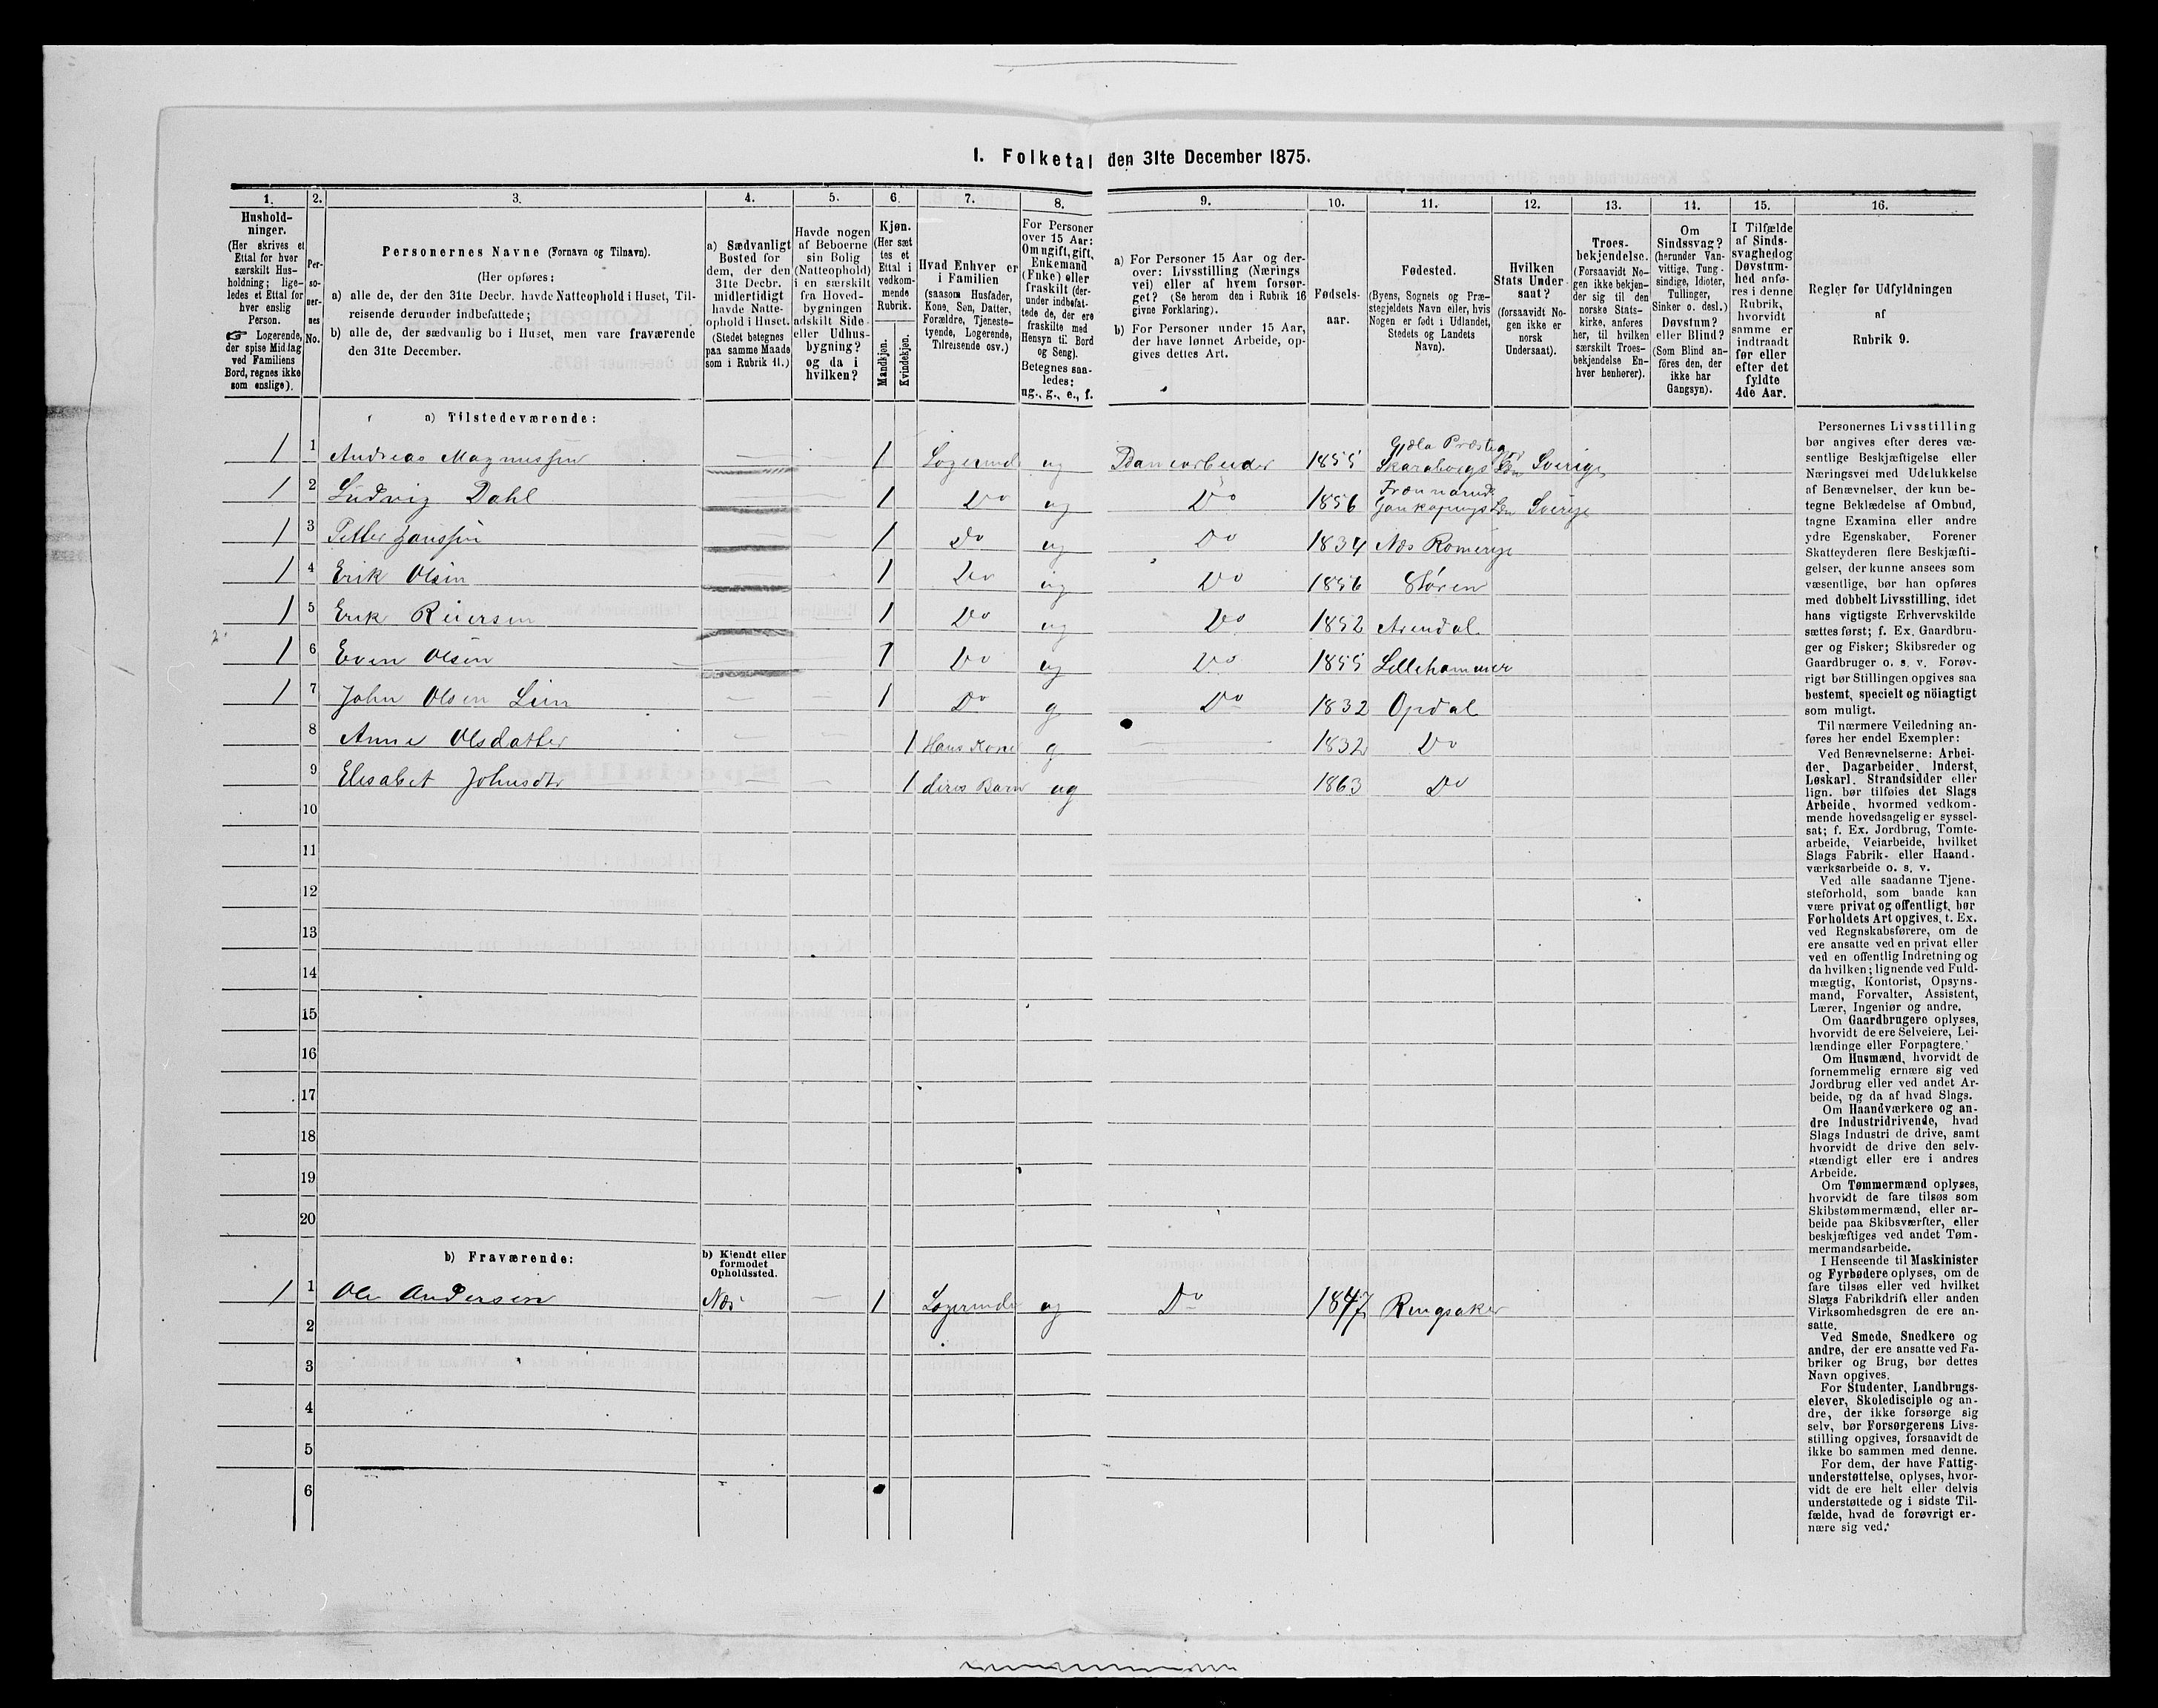 I. Folketal den 31te December 1875.
1. 2. 3. 4. 5. 6. 7. 8. 9. 10. 11. 12. 13. 14. 15. 16.
Hushold-
ninger.
(Her skrives et
Ettal for hver
særskilt Hus-
holdning; lige-
ledes et Ettal for
hver enslig
Person.
Logerende,
der spise Middag
ved Familiens
Bord, regnes ikke
som enslige).
Per-
so-
ner-
nes
No.
Personernes Navne (Fornavn og Tilnavn).
(Her opføres:
a) alle de, der den 31te Decbr. havde Natteophold i Huset, Til-
reisende derunder indbefattede;
b) alle de, der sædvanlig bo i Huset, men vare fraværende
den 31te December.
a) Sædvanligt
Bosted for
dem, der den
31te Decbr.
midlertidigt
havde Natte-
ophold i Huset.
(Stedet betegnes
paa samme Maade
som i Rubrik 11.)
Havde nogen
af Beboerne
sin Bolig
(Natteophold)
i en særskilt
fra Hoved-
bygningen
adskilt Side-
eller Udhus-
bygning?
og da i
hvilken?
Kjøn.
(Her sæt
tes et
Ettal i
vedkom-
mende
Rubrik.
Mandkjøn.
Kvindekjøn.
Hvad Enhver er
i Familien
(saasom Husfader,
Kone, Søn, Datter,
Forældre, Tjeneste-
tyende, Logerende,
Tilreisende osv.)
For Personer
over 15 Aar:
Om ugift, gift,
Enkemand
(Enke) eller
fraskilt (der-
under indbefat-
tede de, der ere
fraskilte med
Hensyn til Bord
og Seng).
Betegnes saa-
ledes:
ug., g., e., f.
a) For Personer 15 Aar og der-
over: Livsstilling (Nærings
vei) eller af hvem forsør-
get? (Se herom den i Rubrik 16
givne Forklaring).
b) For Personer under 15 Aar,
der have lønnet Arbeide, op-
gives dettes Art.
Fødsels-
aar.
Fødested.
(Byens, Sognets og Præ-
stegjeldets Navn eller, hvis
Nogen er født i Udlandet,
Stedets og Landets
Navn).
Hvilken
Stats Under
saat?
(forsaavidt No-
gen ikke er
norsk
Undersaat).
Troes-
bekjendelse.
(Forsaavidt No-
gen ikke bekjen-
der sig til den
norske Stats-
kirke, anføres
her, til hvilken
særskilt Troes-
bekjendelse En-
hver henhører).
Om
Sindssvag?
(herunder Van-
vittige, Tung-
sindige, Idioter,
Tullinger,
Sinker o. desl.)
Døvstum?
eller Blind?
(Som Blind an-
føres den, der
ikke har
Gangsyn).
I Tilfælde
af Sinds-
svaghed og
Døvstum-
hed anfø-
res i denne
Rubrik,
hvorvidt
samme er
indtraadt
før eller
efter det
fyldte
4de Aar.
Regler for Udfyldningen
af
Rubrik 9.
a) Tilstedeværende:
1 1 Andreas Magnussen 1 Logerende ug Banearbeider 1855 Skaraborgs Län Sverige
1 2 Ludvig Dahl 1 Do ug Do 1856 Jönkøpings Län Sverige
1 3 Petter Janssen 1 Do ug Do 1834 Næs Romerige
1 4 Erik Olsen 1 Do ug Do 1856 Støren
1 5 Erik Reiersen 1 Do ug Do 1852 Arendal
1 6 Even Olsen 1 Do ug Do 1855 Lillehammer
1 7 John Olsen Lien 1 Do g Do 1832 Opdal
8 Anne Olsdatter 1 Hans Kone g 1832 Do
9 Elisabet Johnsdtr 1 deres Barn ug 1863 Do
10
11
12
13
14
15
16
17
18
19
20
b) Fraværende:
b) Kjendt eller
formodet
Opholdssted.
1 1 Ole Andersen Næs 1 Logerende ug Do 1847 Ringsaker
2
3
4
5
6
Personernes Livsstilling
bør angives efter deres væ-
sentlige Beskjæftigelse eller
Næringsvei med Udelukkelse
af Benævnelser, der kun be-
tegne Beklædelse af Ombud,
tagne Examina eller andre
ydre Egenskaber. Forener
Skatteyderen flere Beskjæfti-
gelser, der kunne ansees som
væsentlige, bør han opføres
med dobbelt Livsstilling, idet
hans vigtigste Erhvervskilde
sættes først; f. Ex. Gaardbru-
ger og Fisker; Skibsreder og
Gaardbruger o. s. v. Forøv-
rigt bør Stillingen opgives saa
bestemt, specielt og nöiagtigt
som muligt.
Til nærmere Veiledning an-
føres her endel Exempler:
Ved Benævnelserne: Arbei-
der, Dagarbeider, Inderst,
Løskarl, Strandsidder eller
lign. bør tilføies det Slags
Arbeide, hvormed vedkom-
mende hovedsagelig er syssel-
sat; f. Ex. Jordbrug, Tomte-
arbeide, Veiarbeide, hvilket
Slags Fabrik- eller Haand-
værksarbeide o. s. v.
Ved alle saadanne Tjene-
steforhold, som baade kan
være privat og offentligt, bør
Forholdets Art opgives, t. Ex.
ved Regnskabsførere, om de
ere ansatte ved en privat eller
ved en offentlig Indretning og
da hvilken; lignende ved Fuld-
mægtig, Kontorist, Opsyns-
mand, Forvalter, Assistent,
Lærer, Ingeniør og andre.
Om Gaardbrugere oplyses,
hvorvidt de ere Selveiere, Lei-
lændinge eller Forpagtere.
Om Husmænd, hvorvidt de
fornemmelig ernære sig ved
Jordbrug eller ved andet Ar-
beide, og da af hvad Slags.
Om Haandværkere og an-
dre Industridrivende, hvad
Slags Industri de drive, samt
hvorvidt de drive den selv-
stændigt eller ere i andres
Arbeide.
Om Tømmermænd oplyses,
hvorvidt de fare tilsøs som
Skibstømmermænd, eller ar-
beide paa Skibsværfter, eller
beskjæftiges ved andet Tøm-
mermandsarbeide.
I Henseende til Maskinister
og Fyrbødere oplyses, om de
fare tilsøs eller ved hvilket
Slags Fabrikdrift eller anden
Virksomhedsgren de ere an-
satte.
Ved Smede, Snedkere og
andre, der ere ansatte ved Fa-
briker og Brug, bør dettes
Navn opgives.
For Studenter, Landbrugs-
elever, Skoledisciple og an-
dre, der ikke forsørge sig
selv, bør Forsørgerens Livs-
stilling opgives, forsaavidt de
ikke bo sammen med denne.
For dem, der have Fattig-
understøttelse, oplyses, hvor-
vidt de ere helt eller delvis
understøttede og i sidste Til-
fælde, hvad de forøvrigt er-
nære sig ved.